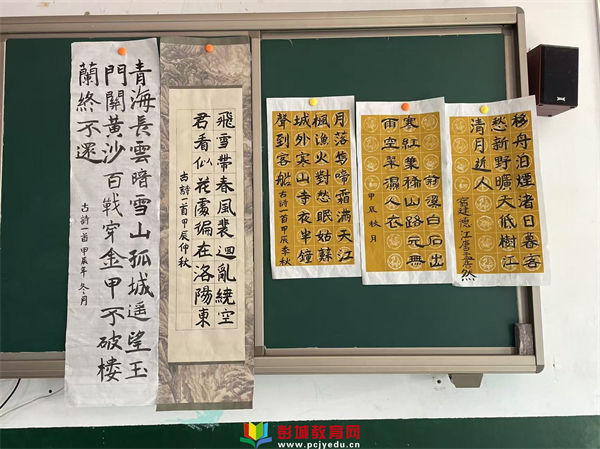 青海長雲暗雪山孤城遥望玉
門關黃沙百戰穿金甲不破楼
蘭終不还
古詩一首甲辰年冬月
飛雪帶春風裴迴亂繞空
君看似花處偏在洛陽東
古詩一首甲辰仲秋
月落烏啼霜滿天江
楓漁火對愁眠姑蘇
城外寒山寺夜半鐘
聲到客船
古詩一首甲辰季秋
溪白石出
寒紅葉稀山路元無
雨空翠濕人衣
甲辰秋月
移舟泊煙渚日暮客
愁新野曠天低樹江
清月近人
宿建德江唐孟浩然
彭城教育网
www.pcjyedu.cn